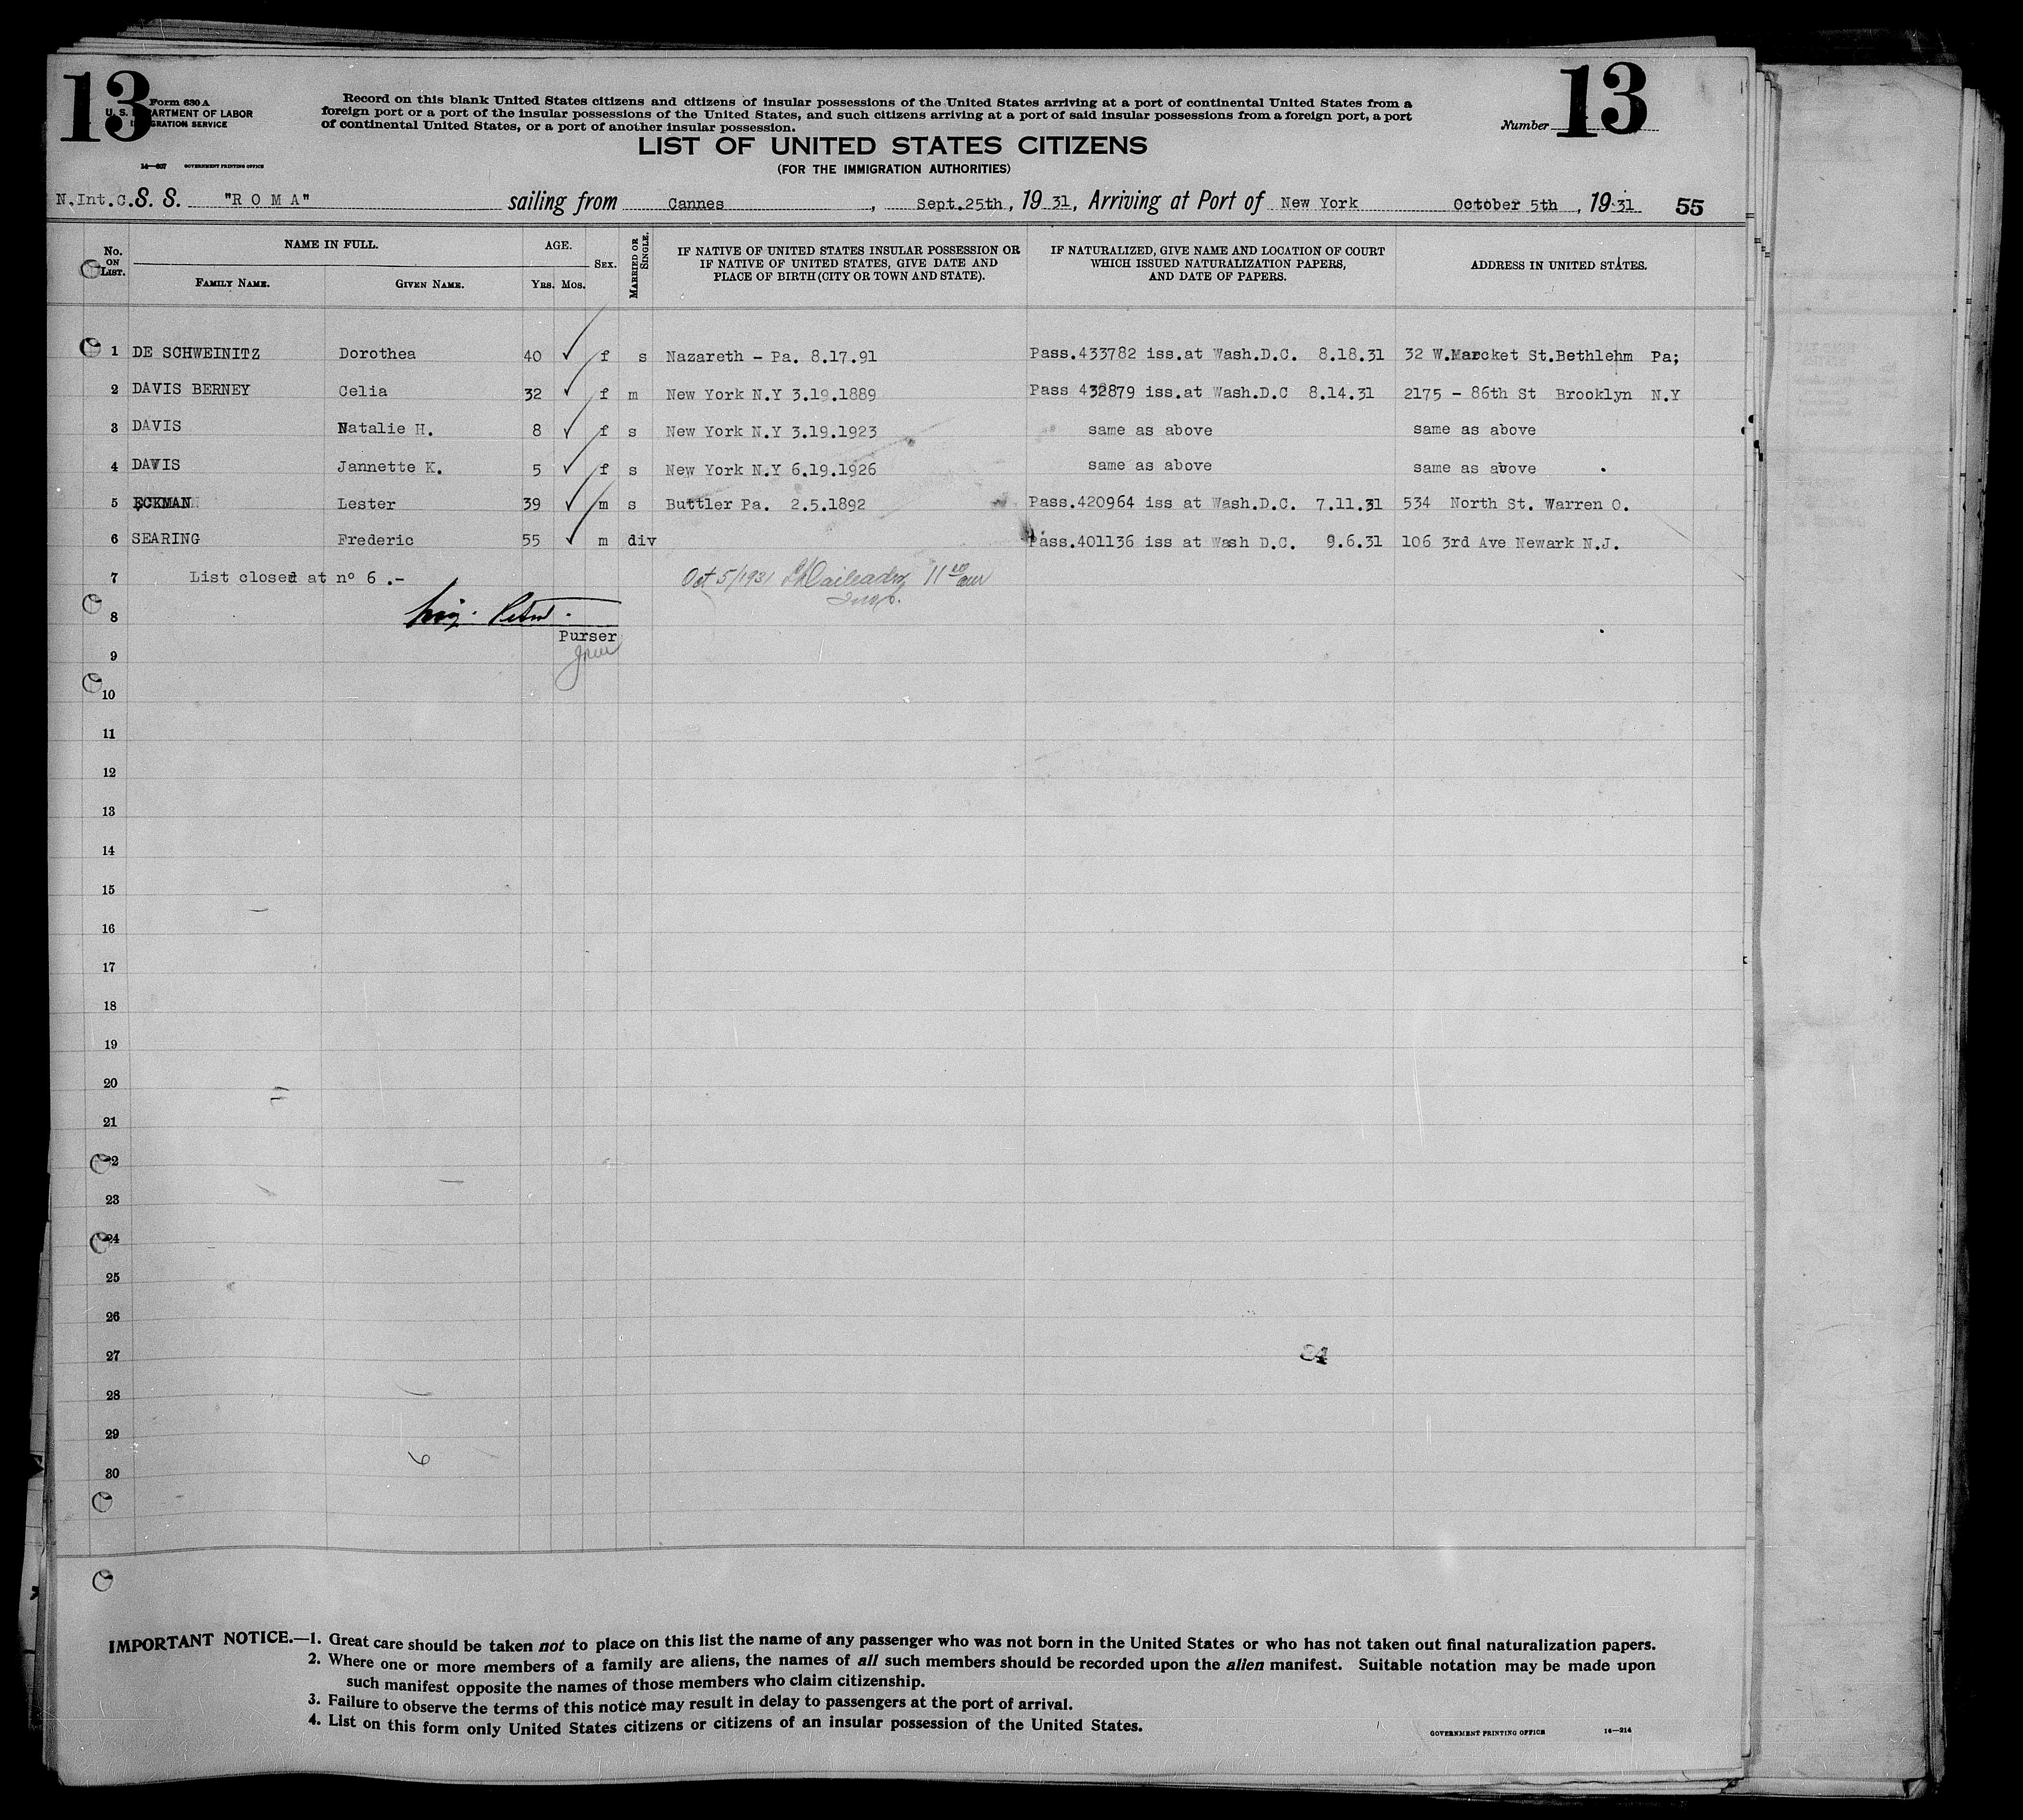 13
13
Form 630 A
U. S. DEPARTMENT OF LABOR
IMMIGRATION SERVICE
14—607 GOVERNMENT PRINTING OFFICE
Record on this blank United States citizens and citizens of insular possessions of the United States arriving at a port of continental United States from a
foreign port or a port of the insular possessions of the United States, and such citizens arriving at a port of said insular possessions from a foreign port, a port
of continental United States, or a port of another insular possession.
Number
LIST OF UNITED STATES CITIZENS
(FOR THE IMMIGRATION AUTHORITIES)
N.Int.C. S. S. "R O M A" sailing from Cannes, Sept.25th, 19 31, Arriving at Port of New York October 5th, 19 31 55
No. ON LIST. NAME IN FULL. AGE. SEX. MARRIED OR SINGLE. IF NATIVE OF UNITED STATES INSULAR POSSESSION OR IF NATIVE OF UNITED STATES, GIVE DATE AND PLACE OF BIRTH (CITY OR TOWN AND STATE). IF NATURALIZED, GIVE NAME AND LOCATION OF COURT WHICH ISSUED NATURALIZATION PAPERS, AND DATE OF PAPERS. ADDRESS IN UNITED STATES.
FAMILY NAME. GIVEN NAME. YRS. MOS.
1 DE SCHWEINITZ Dorothea 40 f s Nazareth - Pa. 8.17.91 Pass.433782 iss.at Wash.D.C. 8.18.31 32 W.Marcket St.Bethlehm Pa;
2 DAVIS BERNEY Celia 32 f m New York N.Y 3.19.1889 Pass 432879 iss.at Wash.D.C 8.14.31 2175 - 86th St Brooklyn N.Y
3 DAVIS Natalie H. 8 f s New York N.Y 3.19.1923 same as above same as above
4 DAVIS Jannette K. 5 f s New York N.Y 6.19.1926 same as above same as above
5 ECKMAN Lester 39 m s Buttler Pa. 2.5.1892 Pass.420964 iss at Wash.D.C. 7.11.31 534 North St. Warren O.
6 SEARING Frederic 55 m div Pass.401136 iss at Wash D.C. 9.6.31 106 3rd Ave Newark N.J.
7 List closed at nº 6 .- Oct 5/1931 11 am
Insp.
8
Purser
9
10
11
12
13
14
15
16
17
18
19
20
21
22
23
24
25
26
27
28
29
30
6
IMPORTANT NOTICE.—1. Great care should be taken not to place on this list the name of any passenger who was not born in the United States or who has not taken out final naturalization papers.
2. Where one or more members of a family are aliens, the names of all such members should be recorded upon the alien manifest. Suitable notation may be made upon
such manifest opposite the names of those members who claim citizenship.
3. Failure to observe the terms of this notice may result in delay to passengers at the port of arrival.
4. List on this form only United States citizens or citizens of an insular possession of the United States.
GOVERNMENT PRINTING OFFICE 14—214